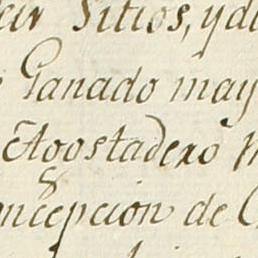 Sitios, y d
Ganado may
Agostadero
ncepcion de C